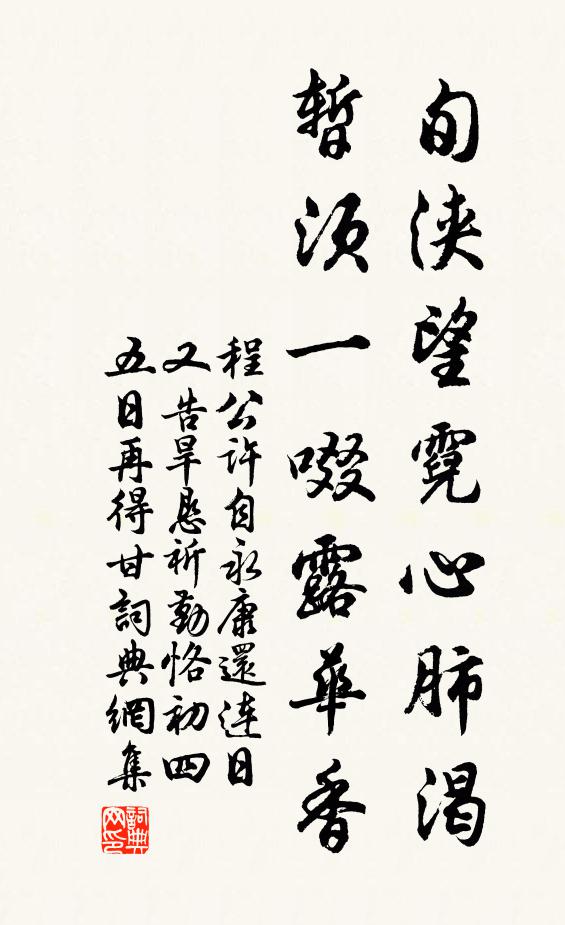 旬浹望霓心肺渴
暫須一啜露華香
程公許自永康還連日
又告旱懇祈勤恪初四
五日再得甘詞典網集
詞典网印